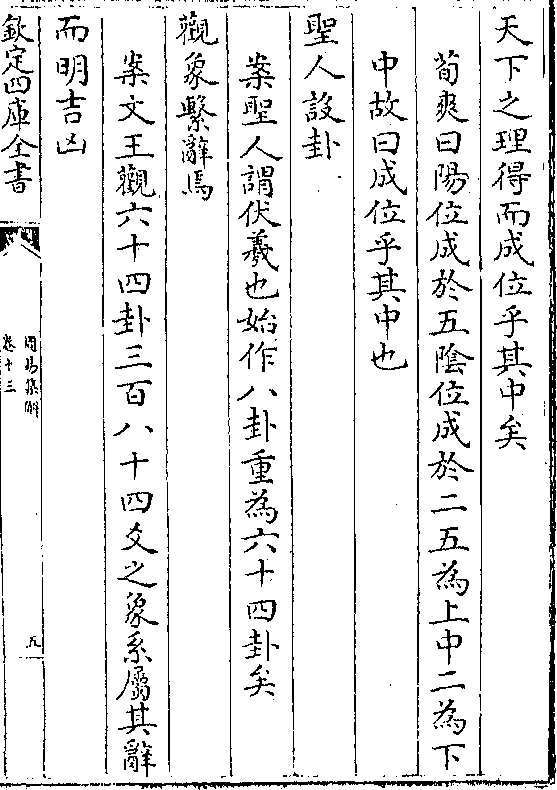 天下之理得而成位乎其中矣
荀爽曰陽位成於五陰位成於二五為上中二為下
中故曰成位乎其中也
聖人設卦
案聖人謂伏羲也始作八卦重為六十四卦矣
觀象繫辭焉
案文王觀六十四卦三百八十四爻之象系屬其辭
而明吉凶
欽定四庫全書
周易集解
卷十三
五